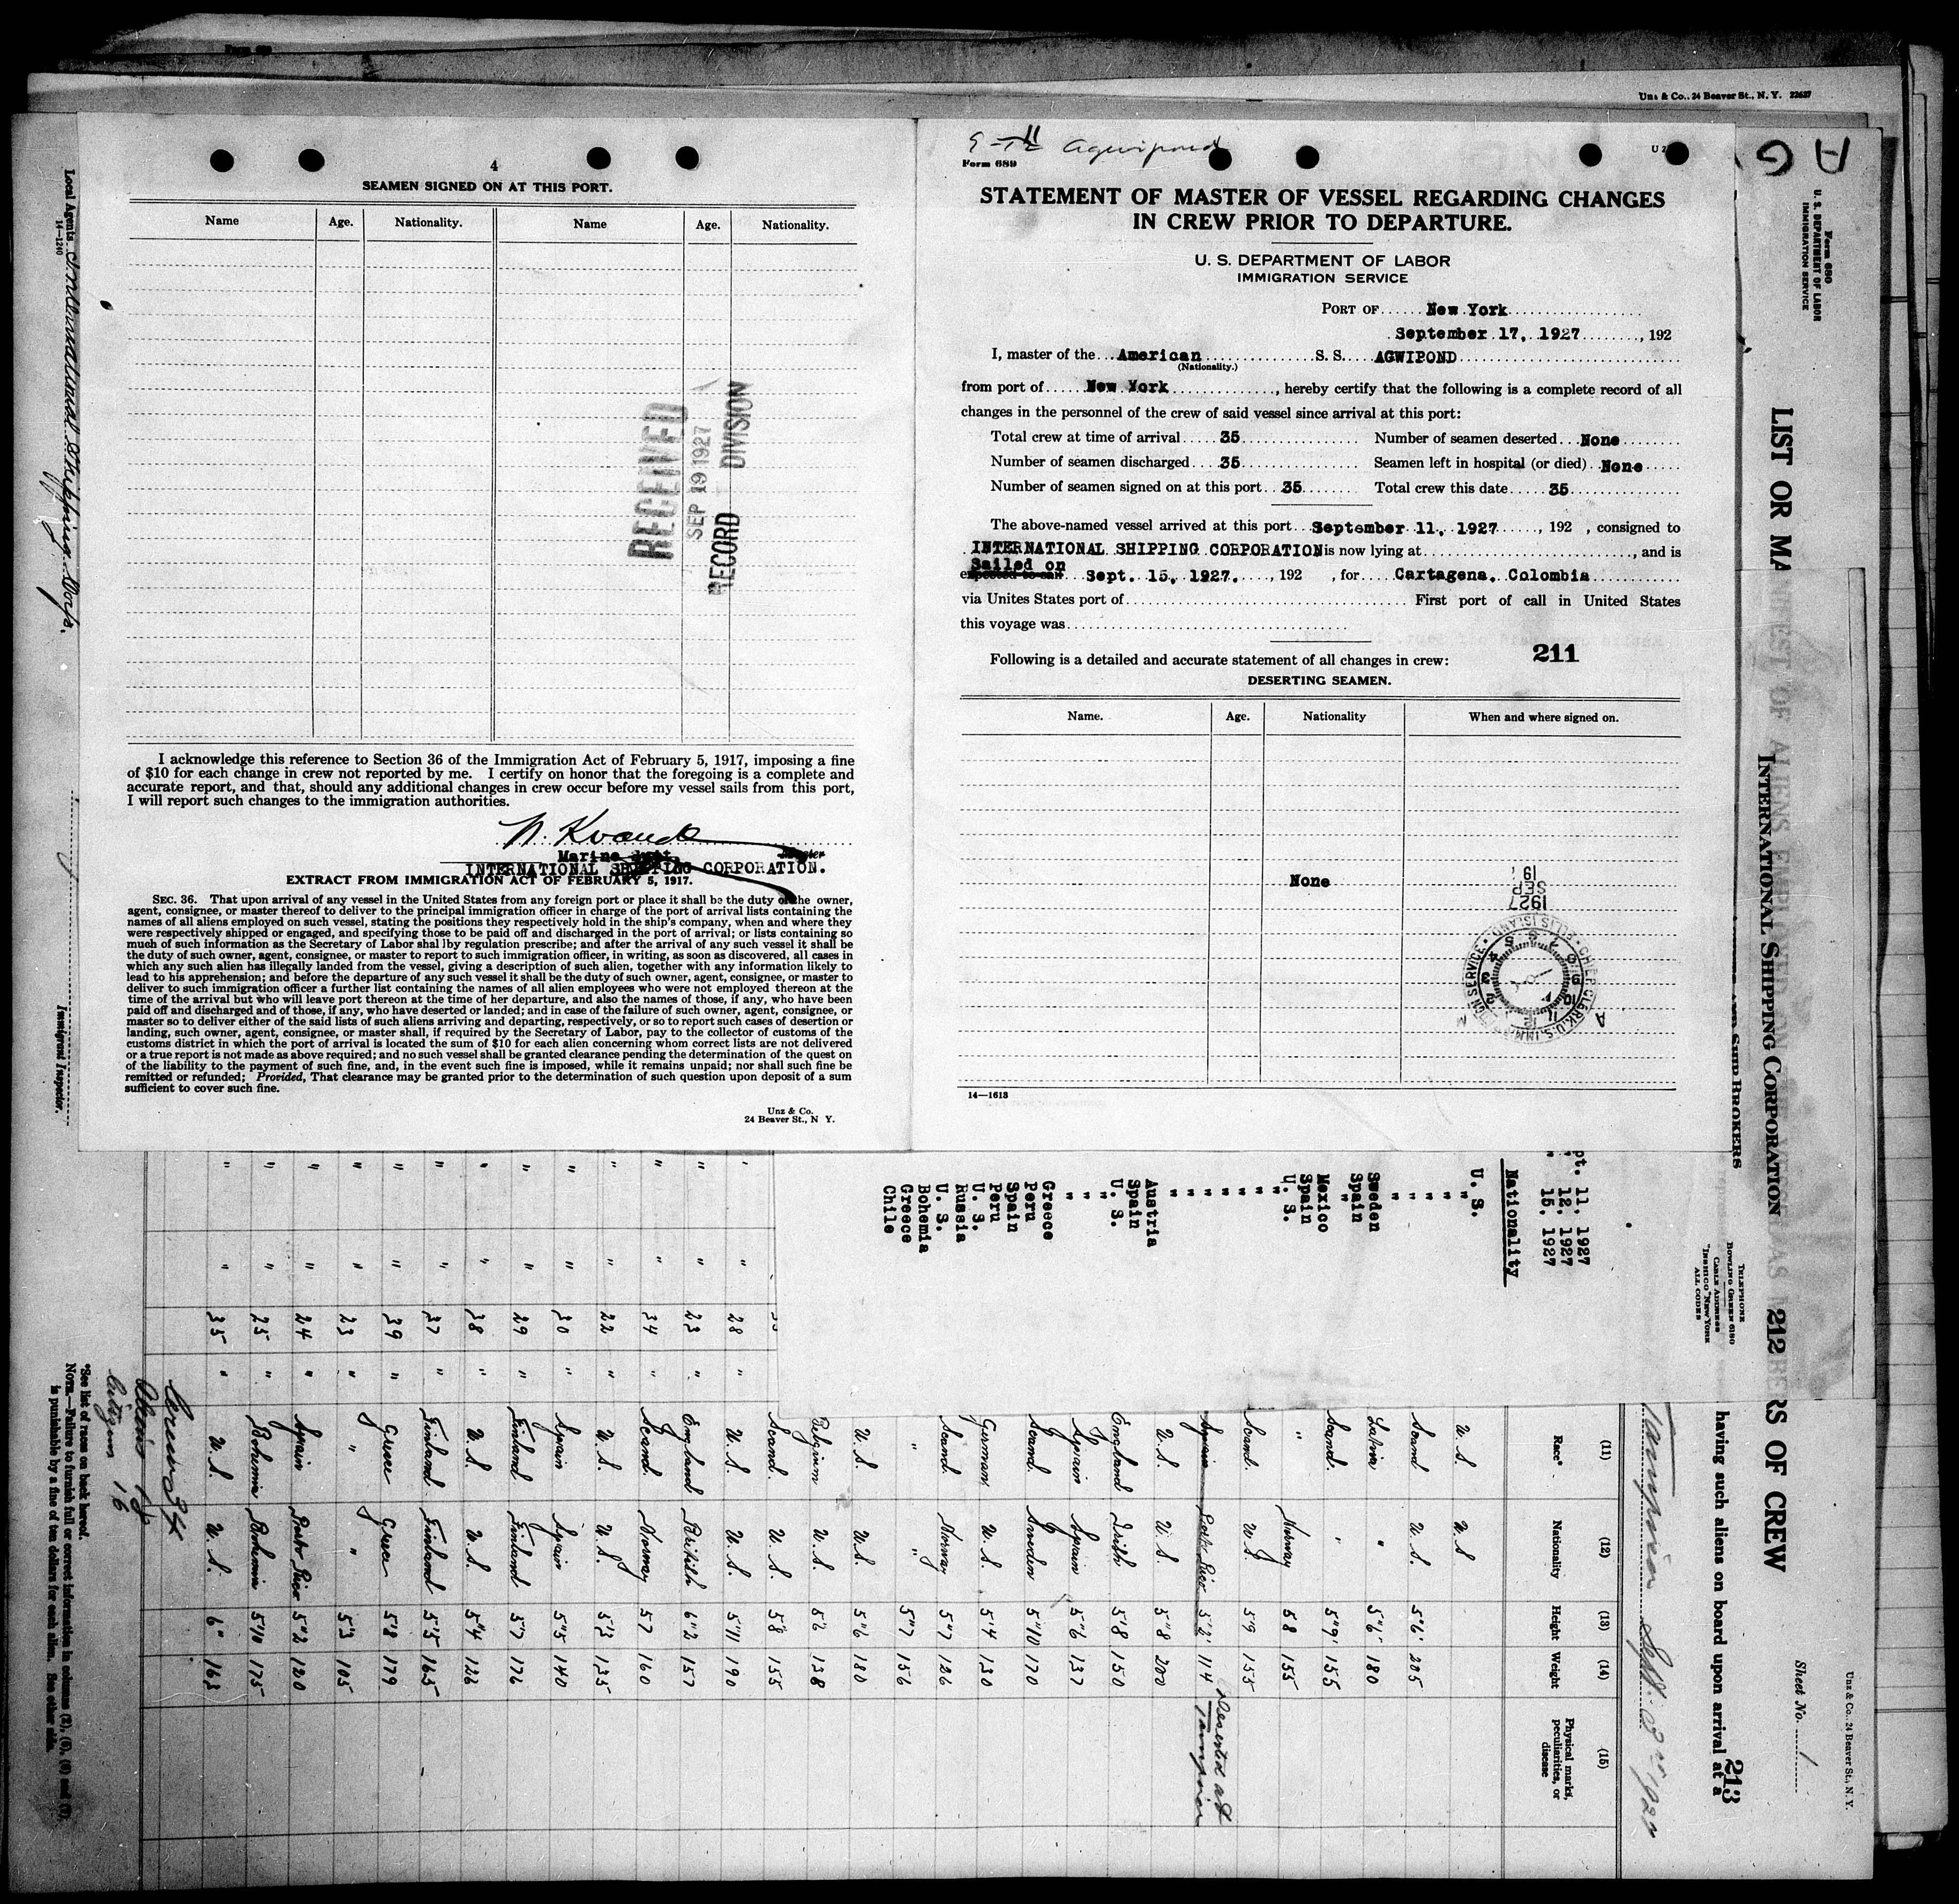 Unz & Co., 24 Beaver St., N. Y. 22627
4
SEAMEN SIGNED ON AT THIS PORT.
Name Age. Nationality. Name Age. Nationality.
RECEIVED
SEP 19 1927
RECORD DIVISION
I acknowledge this reference to Section 36 of the Immigration Act of February 5, 1917, imposing a fine
of $10 for each change in crew not reported by me. I certify on honor that the foregoing is a complete and
accurate report, and that, should any additional changes in crew occur before my vessel sails from this port,
I will report such changes to the immigration authorities.
Marine Supt. Master
INTERNATIONAL SHIPPING CORPORATION.
EXTRACT FROM IMMIGRATION ACT OF FEBRUARY 5, 1917.
SEC. 36. That upon arrival of any vessel in the United States from any foreign port or place it shall be the duty of the owner,
agent, consignee, or master thereof to deliver to the principal immigration officer in charge of the port of arrival lists containing the
names of all aliens employed on such vessel, stating the positions they respectively hold in the ship's company, when and where they
were respectively shipped or engaged, and specifying those to be paid off and discharged in the port of arrival; or lists containing so
much of such information as the Secretary of Labor shal lby regulation prescribe; and after the arrival of any such vessel it shall be
the duty of such owner, agent, consignee, or master to report to such immigration officer, in writing, as soon as discovered, all cases in
which any such alien has illegally landed from the vessel, giving a description of such alien, together with any information likely to
lead to his apprehension; and before the departure of any such vessel it shall be the duty of such owner, agent, consignee, or master to
deliver to such immigration officer a further list containing the names of all alien employees who were not employed thereon at the
time of the arrival but who will leave port thereon at the time of her departure, and also the names of those, if any, who have been
paid off and discharged and of those, if any, who have deserted or landed; and in case of the failure of such owner, agent, consignee, or
master so to deliver either of the said lists of such aliens arriving and departing, respectively, or so to report such cases of desertion or
landing, such owner, agent, consignee, or master shall, if required by the Secretary of Labor, pay to the collector of customs of the
customs district in which the port of arrival is located the sum of $10 for each alien concerning whom correct lists are not delivered
or a true report is not made as above required; and no such vessel shall be granted clearance pending the determination of the quest on
of the liability to the payment of such fine, and, in the event such fine is imposed, while it remains unpaid; nor shall such fine be
remitted or refunded; Provided, That clearance may be granted prior to the determination of such question upon deposit of a sum
sufficient to cover such fine.
Unz & Co.
24 Beaver St., N Y.
Agwipond
Form 689
U 2
STATEMENT OF MASTER OF VESSEL REGARDING CHANGES
IN CREW PRIOR TO DEPARTURE.
U. S. DEPARTMENT OF LABOR
IMMIGRATION SERVICE
PORT OF New York
September 17, 1927, 192
I, master of the American S. S. AGWIPOND
(Nationality.)
from port of New York, hereby certify that the following is a complete record of all
changes in the personnel of the crew of said vessel since arrival at this port:
Total crew at time of arrival 35 Number of seamen deserted None
Number of seamen discharged 35 Seamen left in hospital (or died) None
Number of seamen signed on at this port 35 Total crew this date 35
The above-named vessel arrived at this port September 11, 1927, 192 , consigned to
INTERNATIONAL SHIPPING CORPORATION is now lying at, and is
Sailed on
expected to sail Sept. 15, 1927., 192 , for Cartagena, Colombia
via Unites States port of First port of call in United States
this voyage was
Following is a detailed and accurate statement of all changes in crew: 211
DESERTING SEAMEN.
Name. Age. Nationality When and where signed on.
None
SEP 19
1927
CHIEF CLERK, U. S. IMMI ON SERVICE ELLIS ISLAND
14—1613
AG
Form 680
U. S. DEPARTMENT OF LABOR
IMMIGRATION SERVICE
LIST OR MANIFEST OF ALIENS EMPLOYED ON AS MEMBERS OF CREW
212
INTERNATIONAL SHIPPING CORPORATION
SHIP BROKERS
TELEPHONE
BOWLING GREEN 6180
CABLE ADDRESS
"INSHICO" NEW YORK
ALL CODES
having such aliens on board upon arrival at a
213
Sheet No. 1
Unz & Co., 24 Beaver St., N. Y.
pt. 11, 1927
" 12, 1927
" 15, 1927
Nationality
U. S.
"
"
"
"
Sweden
Spain
"
Mexico
Spain
U. S.
"
"
"
"
"
"
Austria
Spain
U. S.
"
"
"
Greece
Peru
Spain
Peru
U. S.
Russia
U. S.
Bohemia
Greece
Chile
(11) (12) (13) (14) (15)
Race* Nationality Height Weight Physical marks, peculiarities, or disease
U.S. U.S
Scand U.S. 5'6" 205
Latvia " 5"6" 180
Scand. " 5"9" 155
" Norway 5 8 155
Scand. U.S. 5'9 155
Spain Porto Rico 5'2" 114 Deserted at Tampico
U.S. U.S. 5"8 200
England Irish 5'8 150
Spain Spain 5"6 137
Scand. Sweden 5"10 170
German U.S. 5"4 130
Scand. Norway 5"7 126
" " 5"7 156
U.S. U.S. 5"6 180
Belgium U.S. 5'6 138
Scand. U.S 5"8 155
28 " U.S. U.S. 5"11 190
23 " England British 6"2 157
34 " Scand. Norway 57 160
22 " U.S. U.S. 5'3 135
30 " Spain Spain 5"5 140
29 " Finland Finland 5"7 176
38 " U.S. U.S. 5"4 126
37 " Finland Finland 5'5 165
39 " Greece Greece 5'8 179
23 " " " 5'3 105
24 " Spain Porto Rico 5"2 120
25 " Bohemia Bohemia 5"10 175
35 " U.S. U.S. 6" 163
Crew 34
Aliens 18
Citizen 16
*See list of races on back hereof.
NOTE.—Failure to furnish full or correct information in columns (2), (5), (6) and (7),
is punishable by a fine of ten dollars for each alien. See other side.
Local Agents International Shipping Corp.
14—1240
Immigrant Inspector.